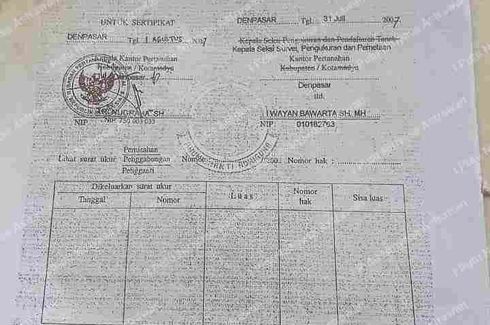 UNTUK SERTIPIKAT
DENPASAR Tgl. 1 AGUSTUS 2007
Kepala Kantor Pertanahan
Kabupaten / Kotamadya
Denpasar
SH
NIP.
DENPASAR Tgl. 31 Juli 2007
Kepala Seksi Pengukuran dan Pendaftaran Tanah
Kepala Seksi Survei, Pengukuran dan Pemetaan
Kantor Pertanahan
Kabupaten / Kotamadya
Denpasar
ttd.
I WAYAN BAWARTA SH, MH
NIP. 010182763
Pemisahan
Lihat surat ukur Penggabungan Nomor Nomor hak :
Pengganti
Dikeluarkan surat ukur
Tanggal Nomor Luas Nomor hak Sisa luas